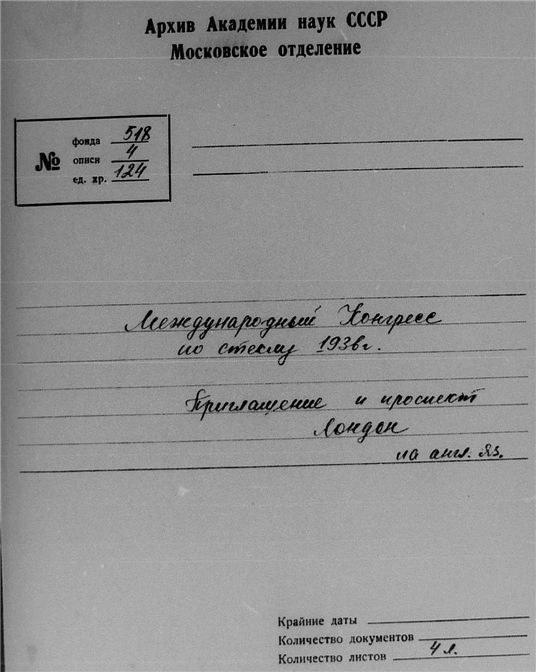 Архив Академии наук СССР
Московское отделение
№
фонда 518
описи 4
ед. хр. 124
Международный Конгресс
по стеклу 1936г.
Приглашение и проспект
Лондон
на англ. яз.
Крайние даты
Количество документов
Количество листов 4 л.